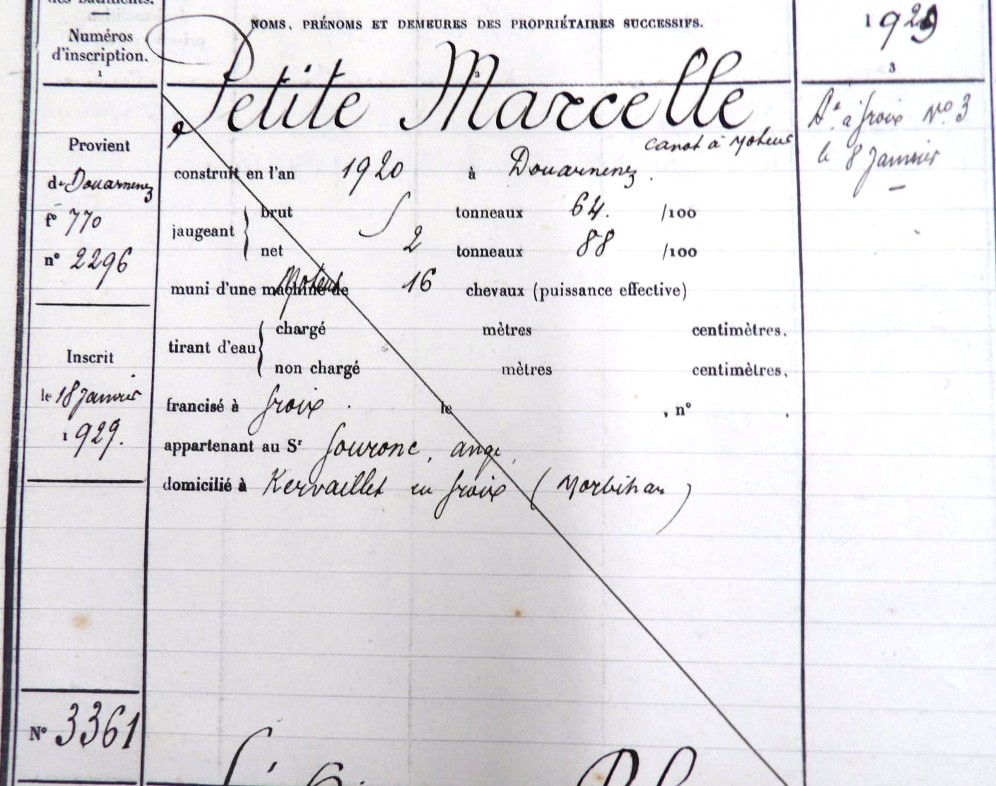 des Bâtiments.
Numéros
d'inscription.
1
NOMS, PRÉNOMS ET DEMEURES DES PROPRIÉTAIRES SUCCESSIFS.
2
1929
3
Petite Marcelle
canot à Moteur
Provient
de Douarnenez
f° 770
n° 2296
Inscrit
le 18 Janvier
1929.
N° 3361
construit en l'an 1920 à Douarnenez.
jaugeant
brut 5 tonneaux 64. /100
net 2 tonneaux 88 /100
muni d'une machine de Moteur 16 chevaux (puissance effective)
tirant d'eau
chargé mètres centimètres.
non chargé mètres centimètres.
francisé à Groix. le , n° .
appartenant au Sr Gouronc, ange,
domicilié à Kervaillet en Groix (Morbihan)
à Groix N° 3
le 8 Janvier